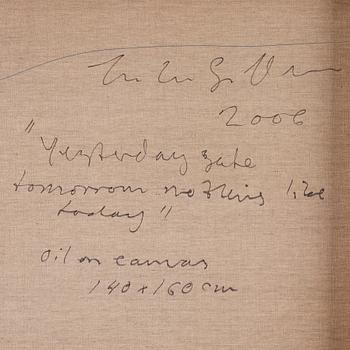 2006
"Yesterday gate
tomorrow nothing like
today"
oil on canvas
140 x 160 cm